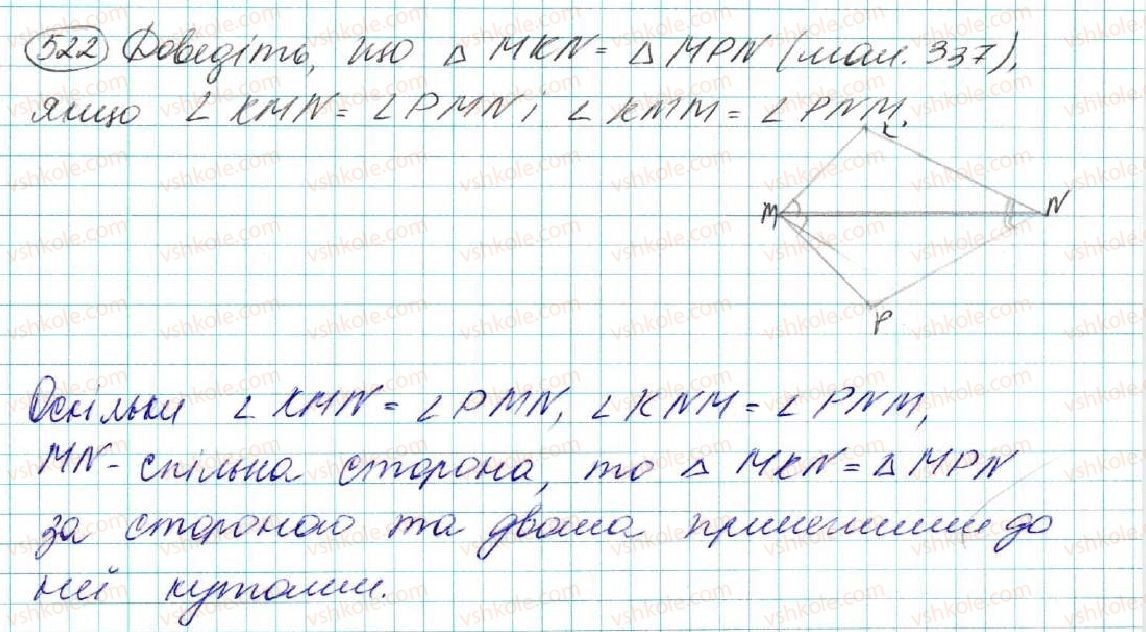 522 Доведіть, що △ MKN = △ MPN (мал. 337),
якщо ∠ KMN = ∠ PMN і ∠ KMM = ∠ PNM.
K
M
N
P
Оскільки ∠ KMN = ∠ PMN, ∠ KNM = ∠ PNM,
MN - спільна сторона, то △ MKN = △ MPN
за стороною та двома прилеглими до
неї кутами.